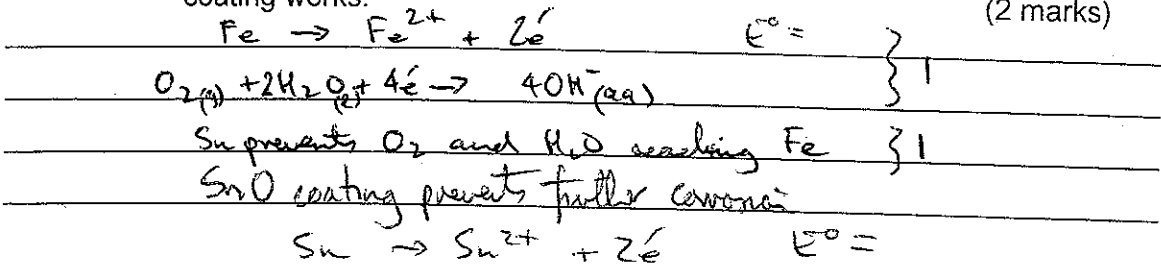 coating works.
(2 marks)
Fe → Fe²⁺ + 2é E° = } 1
O₂(g) + 2H₂O(l) + 4é → 4OH⁻(aq)
Sn prevents O₂ and H₂O reaching Fe } 1
SnO coating prevents further corrosion
Sn → Sn²⁺ + 2é E° =